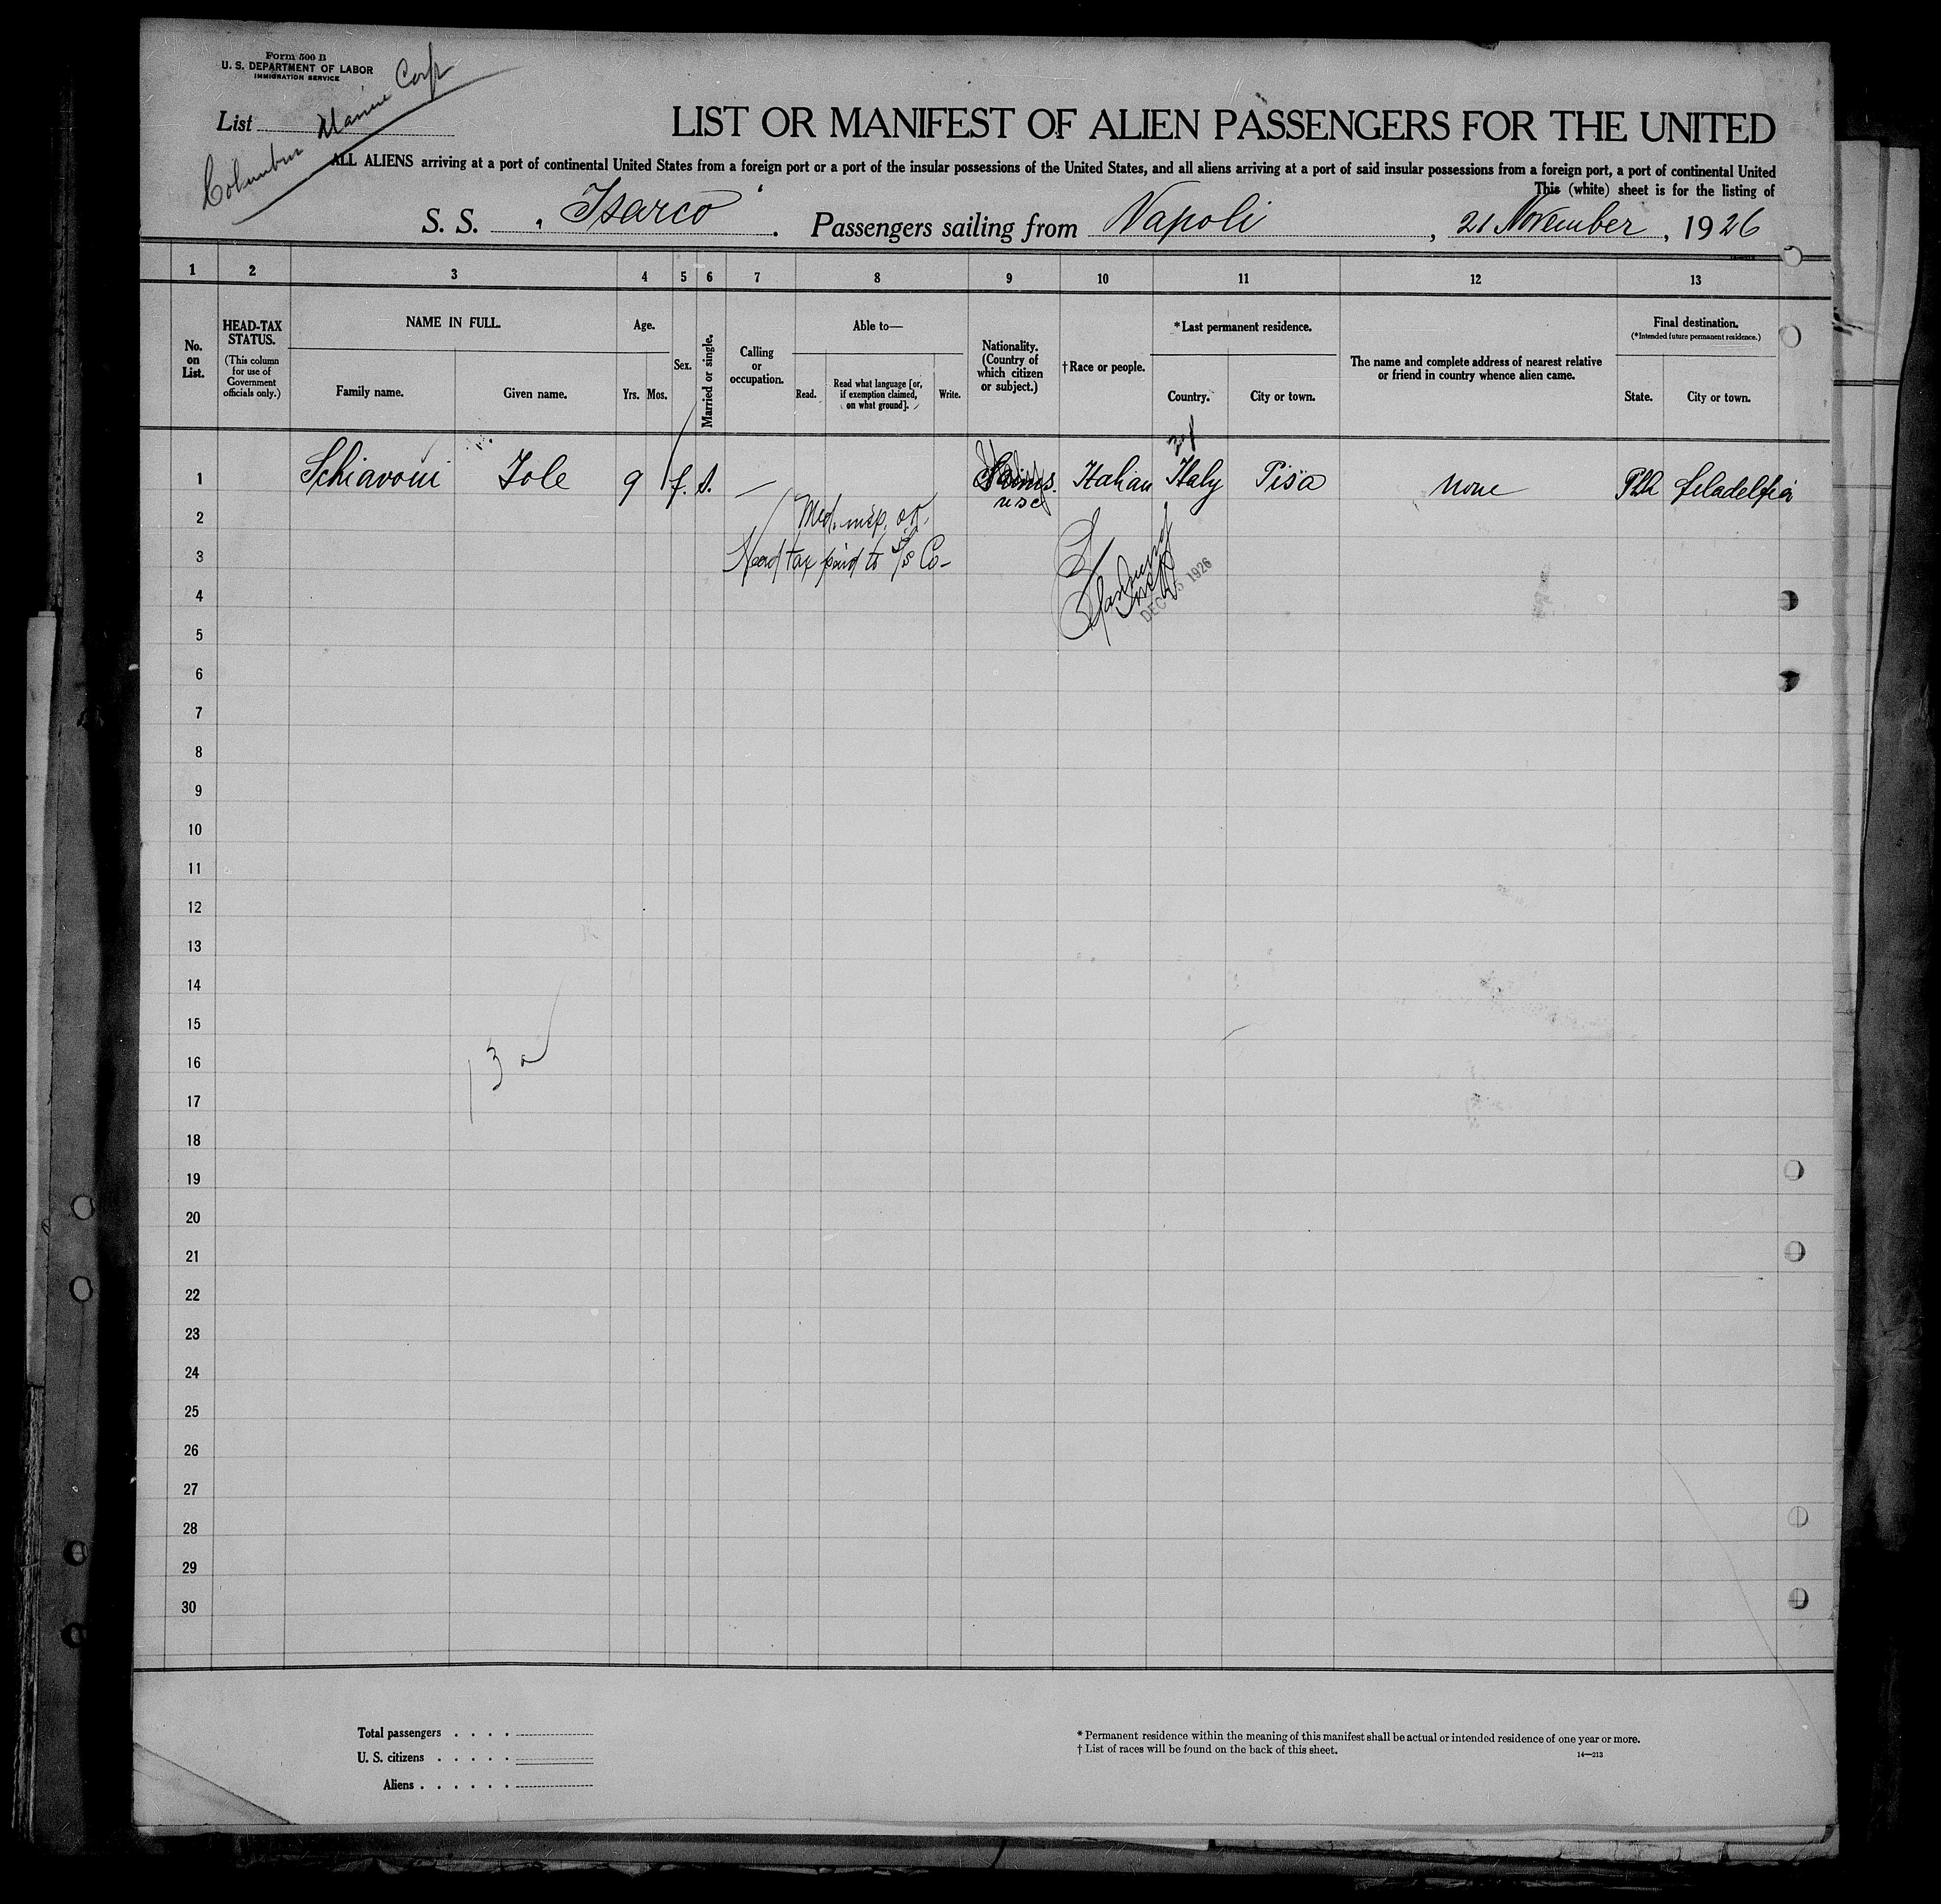 Form 500 B
U. S. DEPARTMENT OF LABOR
IMMIGRATION SERVICE
List
Columbus Marine Corp
LIST OR MANIFEST OF ALIEN PASSENGERS FOR THE UNITED
ALL ALIENS arriving at a port of continental United States from a foreign port or a port of the insular possessions of the United States, and all aliens arriving at a port of said insular possessions from a foreign port, a port of continental United
This (white) sheet is for the listing of
S. S. "Isarco" . Passengers sailing from Napoli , 21 November , 1926
1 2 3 4 5 6 7 8 9 10 11 12 13
No. on List.
HEAD-TAX STATUS.
(This column for use of Government officials only.)
NAME IN FULL.
Family name. Given name.
Age.
Yrs. Mos.
Sex.
Married or single.
Calling or occupation.
Able to—
Read. Read what language [or, if exemption claimed, on what ground]. Write.
Nationality. (Country of which citizen or subject.)
†Race or people.
*Last permanent residence.
Country. City or town.
The name and complete address of nearest relative or friend in country whence alien came.
Final destination.
(*Intended future permanent residence.)
State. City or town.
1 Schiavoni Iole 9 f. s. — usc Italian Italy Pisa none Pha filadelfia
2 Med. insp. ok.
3 Head tax paid to S/S Co-
DEC 1926
4
5
6
7
8
9
10
11
12
13
14
15
16
17
18
19
20
21
22
23
24
25
26
27
28
29
30
Total passengers . . . .
U. S. citizens . . . . .
Aliens . . . . . .
* Permanent residence within the meaning of this manifest shall be actual or intended residence of one year or more.
† List of races will be found on the back of this sheet.
14—213